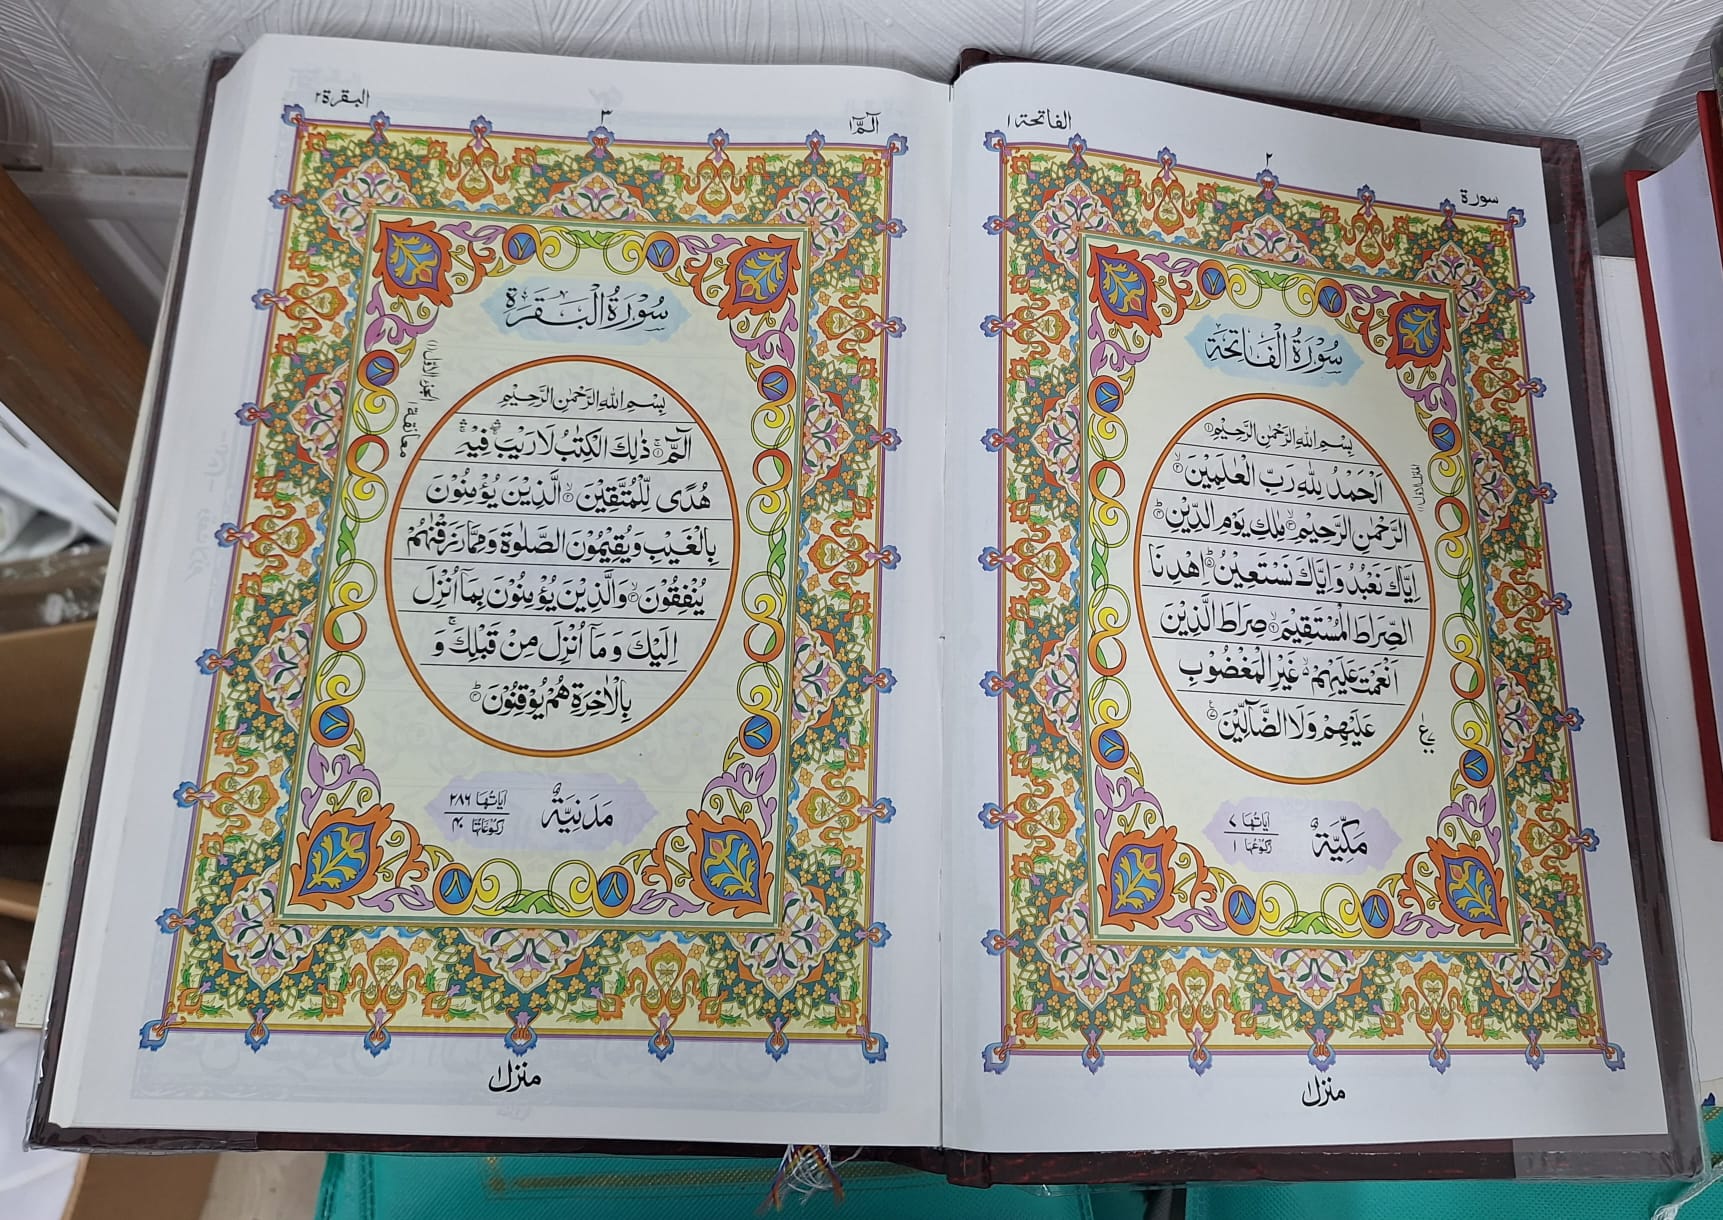 سورة
٢
الفاتحة ١
سُوْرَةُ الْفَاتِحَةِ
بِسْمِ اللهِ الرَّحْمٰنِ الرَّحِيْمِ ①
اَلْحَمْدُ لِلّٰهِ رَبِّ الْعٰلَمِيْنَ ② ۙ
الرَّحْمٰنِ الرَّحِيْمِ ③ ۙ مٰلِكِ يَوْمِ الدِّيْنِ ④ ؕ
اِيَّاكَ نَعْبُدُ وَاِيَّاكَ نَسْتَعِيْنُ ⑤ ؕ اِهْدِنَا
الصِّرَاطَ الْمُسْتَقِيْمَ ⑥ ۙ صِرَاطَ الَّذِيْنَ
اَنْعَمْتَ عَلَيْهِمْ ۙ غَيْرِ الْمَغْضُوْبِ
عَلَيْهِمْ وَلَا الضَّآلِّيْنَ ⑦
مَكِّيَّةٌ
اٰيَاتُهَا ٧
رُكُوْعُهَا ١
منزل ١
الٓمّٓ ١
٣
البقرة ٢
سُوْرَةُ الْبَقَرَةِ
الجزء الاول (١)
معانقة ١
بِسْمِ اللهِ الرَّحْمٰنِ الرَّحِيْمِ
الٓمّٓ ① ۚ ذٰلِكَ الْكِتٰبُ لَا رَيْبَ ۛ فِيْهِ ۛ
هُدًى لِّلْمُتَّقِيْنَ ② ۙ الَّذِيْنَ يُؤْمِنُوْنَ
بِالْغَيْبِ وَيُقِيْمُوْنَ الصَّلٰوةَ وَمِمَّا رَزَقْنٰهُمْ
يُنْفِقُوْنَ ③ ۙ وَالَّذِيْنَ يُؤْمِنُوْنَ بِمَاۤ اُنْزِلَ
اِلَيْكَ وَمَاۤ اُنْزِلَ مِنْ قَبْلِكَ ۚ وَ
بِالْاٰخِرَةِ هُمْ يُوْقِنُوْنَ ④ ؕ
مَدَنِيَّةٌ
اٰيَاتُهَا ٢٨٦
رُكُوْعَاتُهَا ٤٠
منزل ١